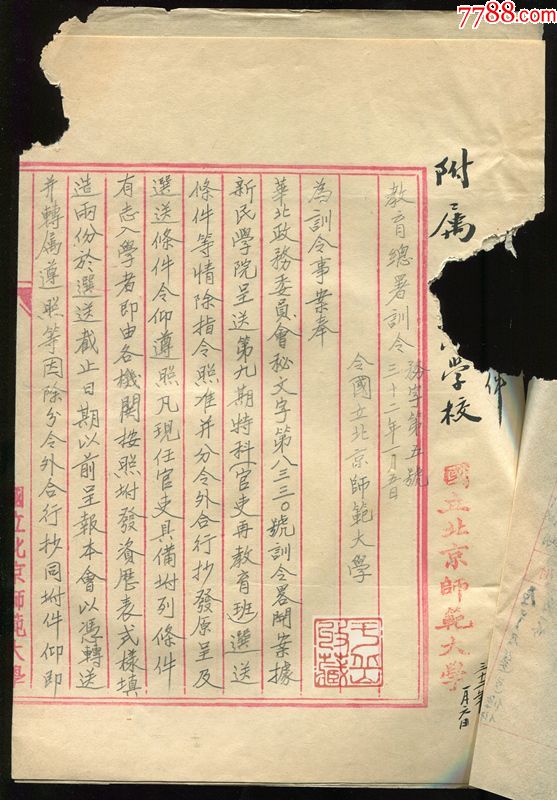 7788.com
附属
学校
件
國立北京師範大學
三十二年
教育總署訓令
務字第五號
三十二年一月五日
令國立北京師範大學
為訓令事案奉
華北政務委員會秘文字第八三三〇號訓令畧開案據
新民學院呈送第九期特科(官吏再教育班)選送
條件等情除指令照准并分令外合行抄發原呈及
選送條件令仰遵照凡現任官吏具備坿列條件
有志入學者即由各機関按照坿發資歷表式樣填
造兩份於選送截止日期以前呈報本會以憑轉送
并轉属遵照等因除分令外合行抄同坿件仰即
國立北京師範大學